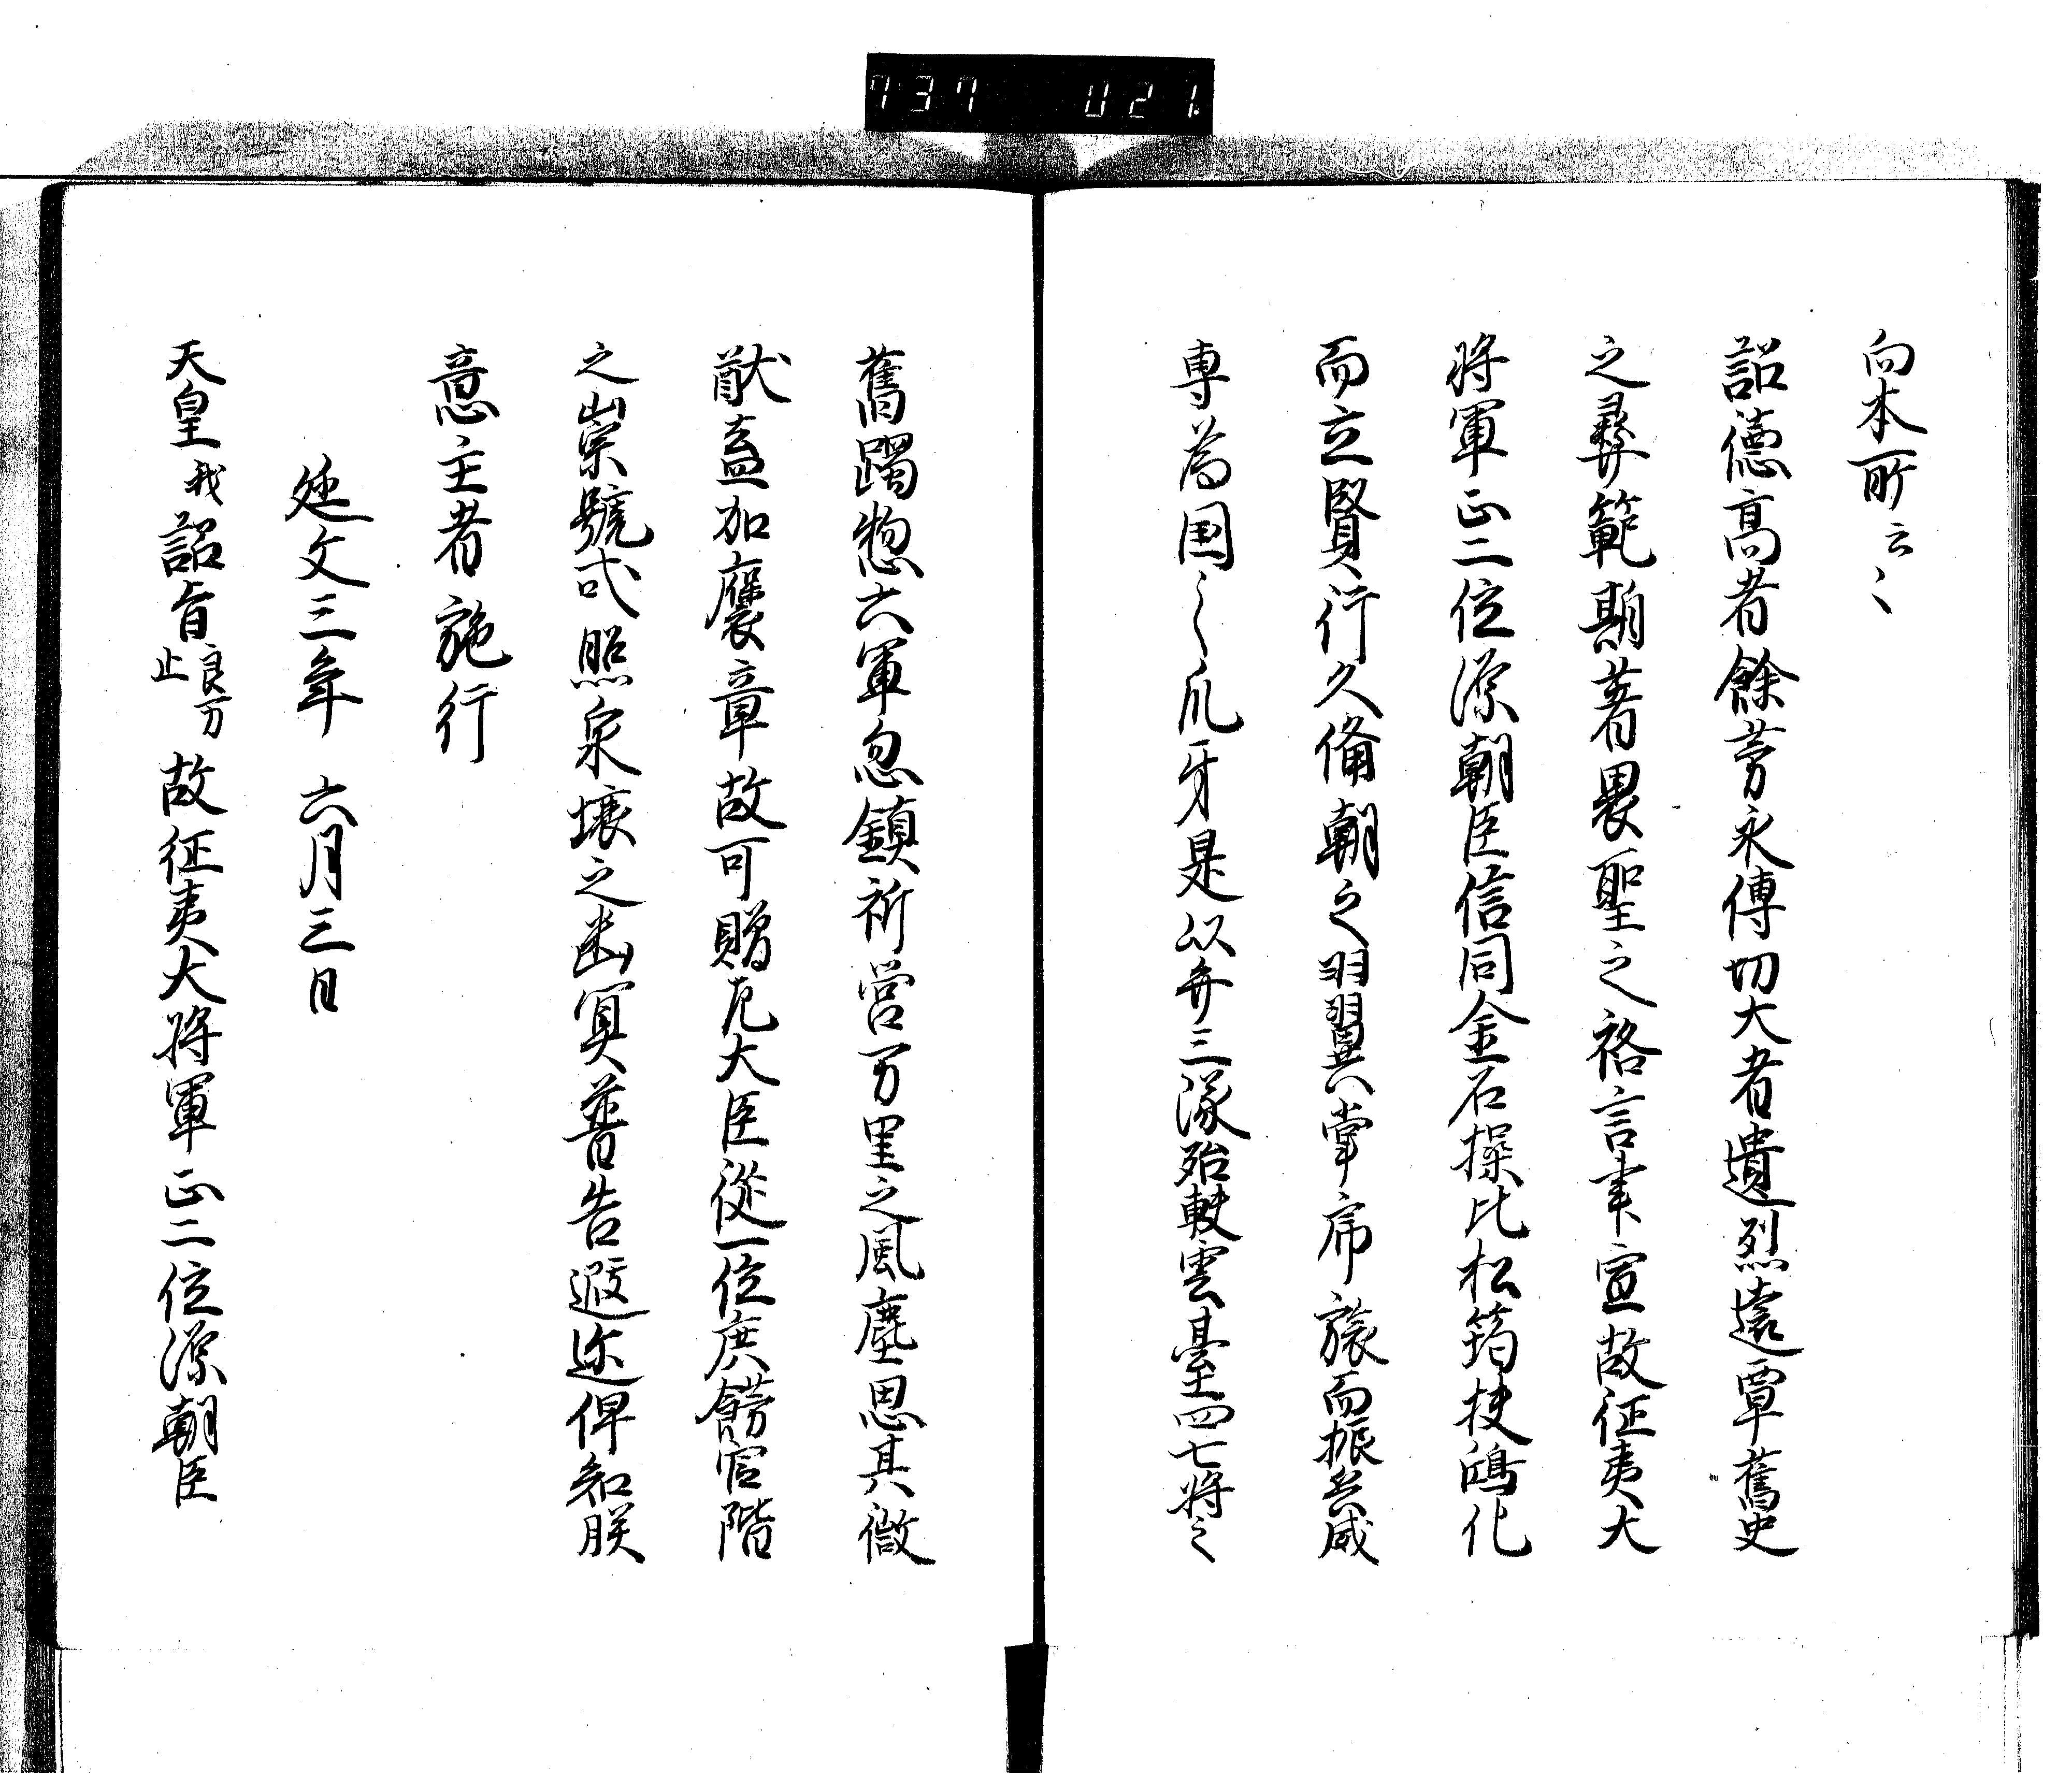 737 021
向本所云々
詔德高者餘芳永傳切大者遺烈遠覃舊史
之彝範斯著畏聖之格言聿宣故征夷大
將軍正二位源朝臣信同金石操比松筠扶鴻化
而立賢行久備朝之羽翼掌帋旅而振兵威
專為国之爪牙是以弁三隊殆軼雲臺四七将之
舊躅惣六軍忽鎮祈營万里之風塵思其徽
猷盍加褒章故可贈左大臣從一位庶餝官階
之崇號式照泉壤之幽冥普告遐迩俾知朕
意主者施行
延文三年 六月三日
天皇我詔旨良万止故征夷大将軍正二位源朝臣